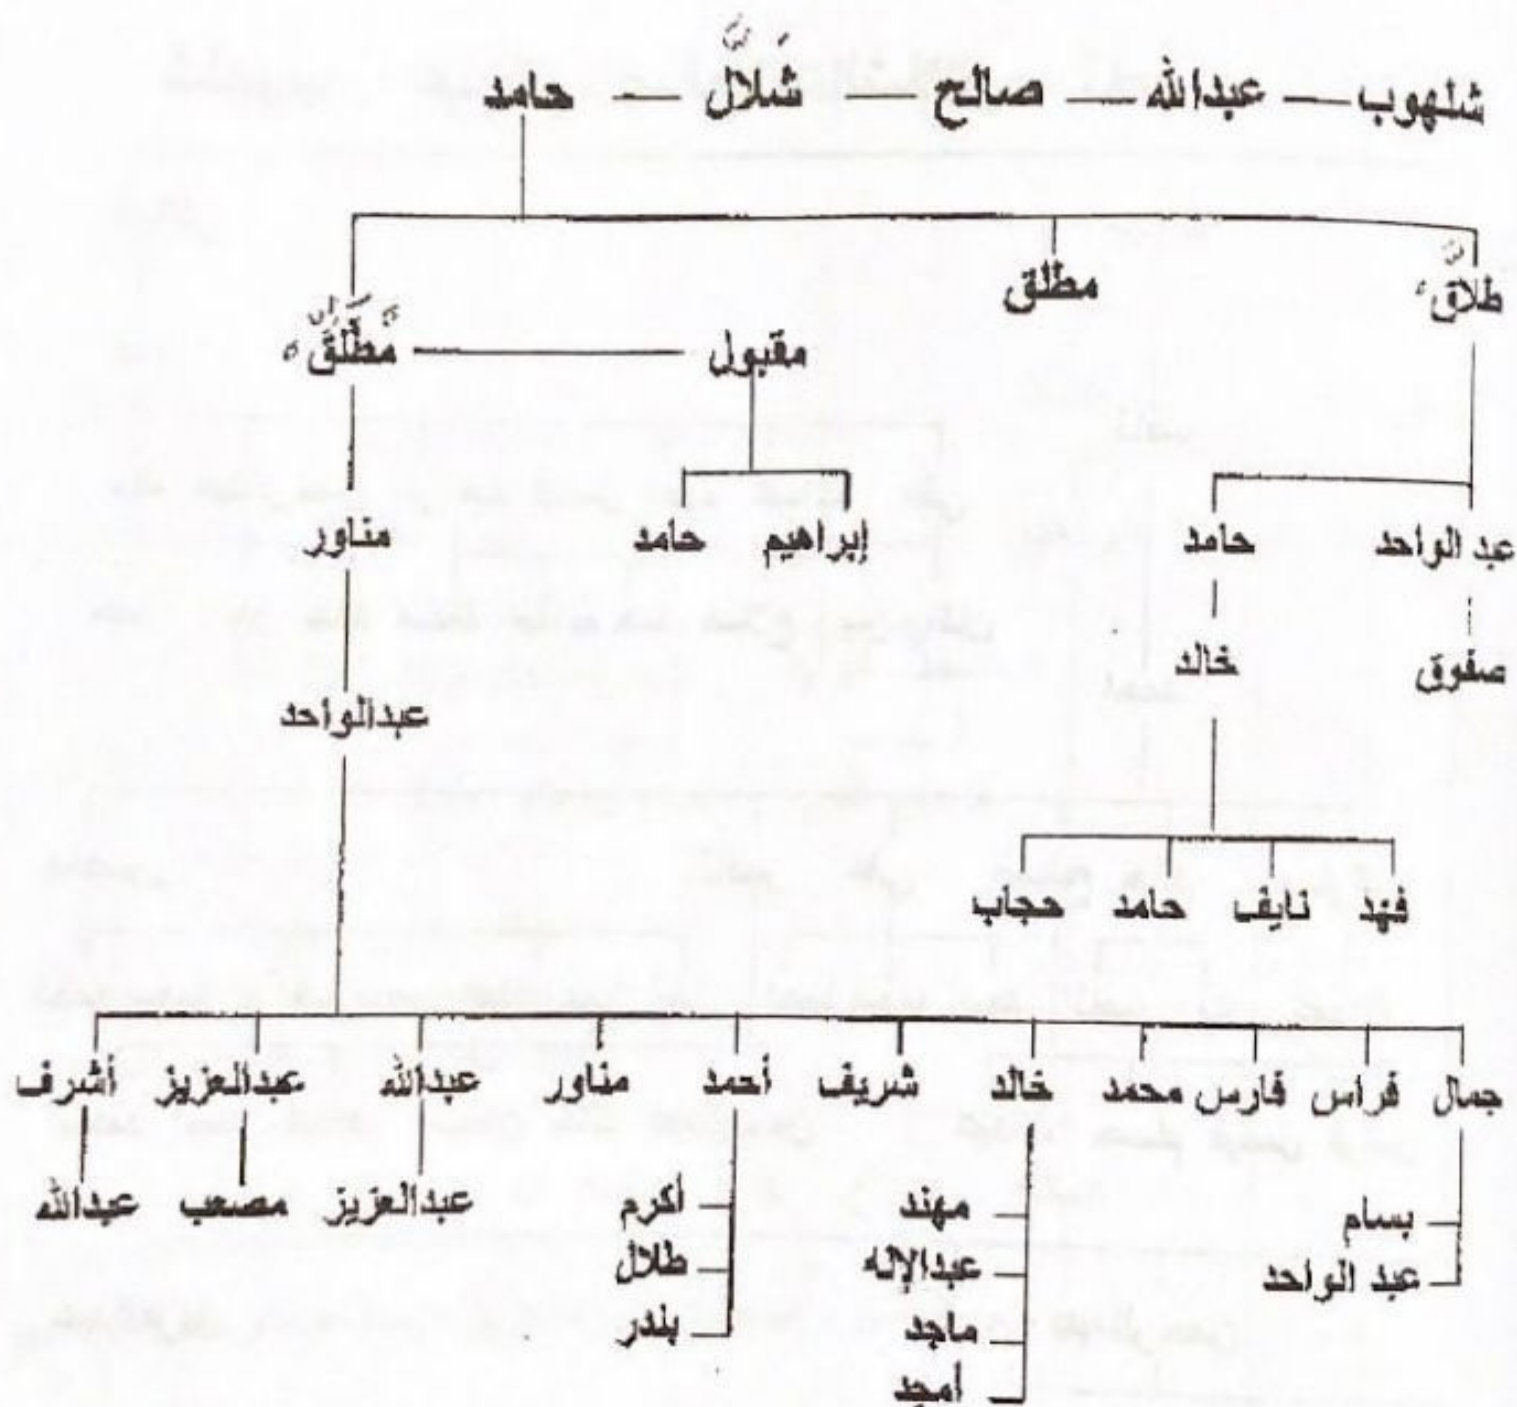 شلهوب — عبدالله — صالح — شَلاَّل — حامد
طلاَّق
مطلق
مَطَّلَق
مقبول
عبد الواحد
حامد
إبراهيم
حامد
مناور
صفوق
خالد
عبدالواحد
فهد نايف حامد حجاب
جمال فراس فارس محمد خالد شريف أحمد مناور عبدالله عبدالعزيز أشرف
بسام
عبد الواحد
مهند
عبدالإله
ماجد
أمجد
أكرم
طلال
بندر
عبدالعزيز
مصعب
عبدالله